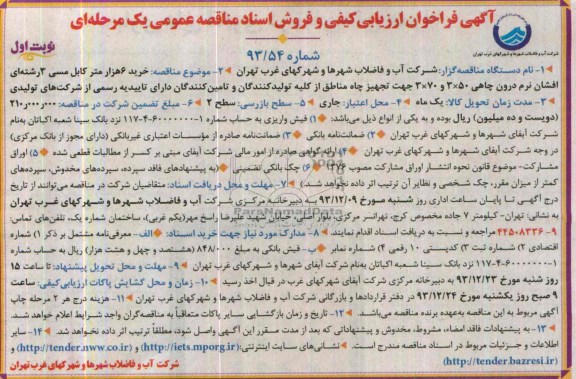 آگهی فراخوان ارزیابی کیفی و فروش اسناد مناقصه عمومی یک مرحله‌ای
شرکت آب و فاضلاب شهرها و شهرکهای غرب تهران
شماره ۹۳/۵۴
نوبت اول
۱- نام دستگاه مناقصه‌گزار: شرکت آب و فاضلاب شهرها و شهرکهای غرب تهران ۲- موضوع مناقصه: خرید ۶هزار متر کابل مسی ۳رشته‌ای
افشان نرم درون چاهی ۵۰×۳ و ۷۰×۳ جهت تجهیز چاه مناطق از کلیه تولیدکنندگان و تامین‌کنندگان دارای تاییدیه رسمی از شرکت‌های تولیدی
۳- مدت زمان تحویل کالا: یک ماه ۴- محل اعتبار: جاری ۵- سطح بازرسی: سطح ۲ ۶- مبلغ تضمین شرکت در مناقصه: ۲۱۰/۰۰۰/۰۰۰
(دویست و ده میلیون) ریال بوده و به یکی از انواع ذیل می‌باشد: ۱) فیش واریزی به حساب شماره ۱-۶۰۰۰۰۰۰-۴-۱۱۷ نزد بانک سینا شعبه اکباتان به‌نام
شرکت آبفای شهرها و شهرکهای غرب تهران ۲) ضمانت‌نامه بانکی ۳) ضمانت‌نامه صادره از مؤسسات اعتباری غیربانکی (دارای مجوز از بانک مرکزی)
در وجه شرکت آبفای شهرها و شهرکهای غرب تهران ۴) ارائه گواهی صادره از امور مالی شرکت آبفای مبتنی بر کسر از مطالبات قطعی شده ۵) اوراق
مشارکت- موضوع قانون نحوه انتشار اوراق مشارکت مصوب ۱۳۷۶ ۶) چک بانکی تضمینی (به پیشنهادهای فاقد سپرده، سپرده‌های مخدوش، سپرده‌های
کمتر از میزان مقرر، چک شخصی و نظایر آن ترتیب اثر داده نخواهد شد.) ۷- مهلت و محل دریافت اسناد: متقاضیان شرکت در مناقصه می‌توانند از تاریخ
درج آگهی تا پایان ساعت اداری روز شنبه مورخ ۹۳/۱۲/۰۹ به دبیرخانه مرکزی شرکت آب و فاضلاب شهرها و شهرکهای غرب تهران
به نشانی: تهران- کیلومتر ۷ جاده مخصوص کرج، تهرانسر مرکزی، بلوار اصلی، خیابان شهید علیرضا راسخ مهر(یکم غربی)، ساختمان شماره یک، تلفن‌های تماس:
۹-۴۴۵۰۸۳۳۶ مراجعه و نسبت به دریافت اسناد اقدام نمایند. ۸- مدارک مورد نیاز جهت خرید اسناد: الف- معرفی‌نامه مشتمل بر ذکر ۱) شماره
اقتصادی ۲) شماره ثبت ۳) کدپستی ۱۰ رقمی ۴) شماره نمابر ب- فیش بانکی به مبلغ ۸۴۸/۰۰۰ (هشتصد و چهل و هشت هزار) ریال به حساب شماره
۱-۶۰۰۰۰۰۰-۴-۱۱۷ نزد بانک سینا شعبه اکباتان به‌نام شرکت آبفای شهرها و شهرکهای غرب تهران ۹- مهلت و محل تحویل پیشنهاد: تا ساعت ۱۵
روز شنبه مورخ ۹۳/۱۲/۲۳ به دبیرخانه مرکزی شرکت آبفای شهرها و شهرکهای غرب در قبال اخذ رسید ۱۰- زمان و محل گشایش پاکات ارزیابی‌کیفی: ساعت
۹ صبح روز یکشنبه مورخ ۹۳/۱۲/۲۴ در دفتر قراردادها و بازرگانی شرکت آب و فاضلاب شهرها و شهرکهای غرب تهران ۱۱- هزینه درج هر ۲ مرحله چاپ
آگهی مربوط به این مناقصه به‌عهده برنده مناقصه می‌باشد. ۱۲- تاریخ و زمان بازگشایی سایر پاکات متعاقباً به مناقصه‌گران واجد شرایط اعلام خواهد شد.
۱۳- به پیشنهادات فاقد امضاء، مشروط، مخدوش و پیشنهاداتی که بعد از مدت مقرر این آگهی واصل شود، مطلقاً ترتیب اثر داده نخواهد شد. ۱۴- سایر
اطلاعات و جزئیات مربوط در اسناد مناقصه مندرج است. نشانی‌های سایت اینترنتی: (http://iets.mporg.ir) و (http://tender.nww.co.ir) و
(http://tender.bazresi.ir)
شرکت آب و فاضلاب شهرها و شهرکهای غرب تهران